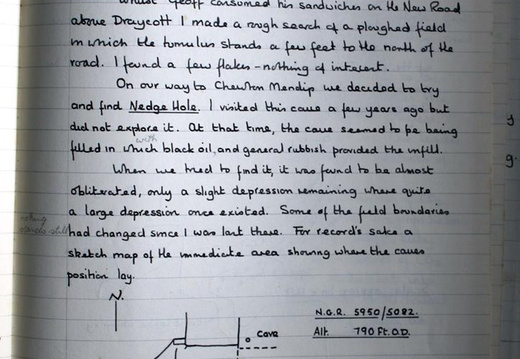 whilst Geoff consumed his sandwiches on the New Road
above Draycott I made a rough search of a ploughed field
in which the tumulus stands a few feet to the north of the
road. I found a few flakes - nothing of interest.
On our way to Chewton Mendip we decided to try
and find Nedge Hole. I visited this cave a few years ago but
did not explore it. At that time, the cave seemed to be being
with
filled in which black oil, and general rubbish provided the infill.
When we tried to find it, it was found to be almost
obliterated, only a slight depression remaining where quite
a large depression once existed. Some of the field boundaries
nothing
had changed since I was last there. For record's sake a
sketch map of the immediate area showing where the caves
position lay.
N.
N.G.R. 5950/5082.
Alt. 790 Ft. O.D.
Cave